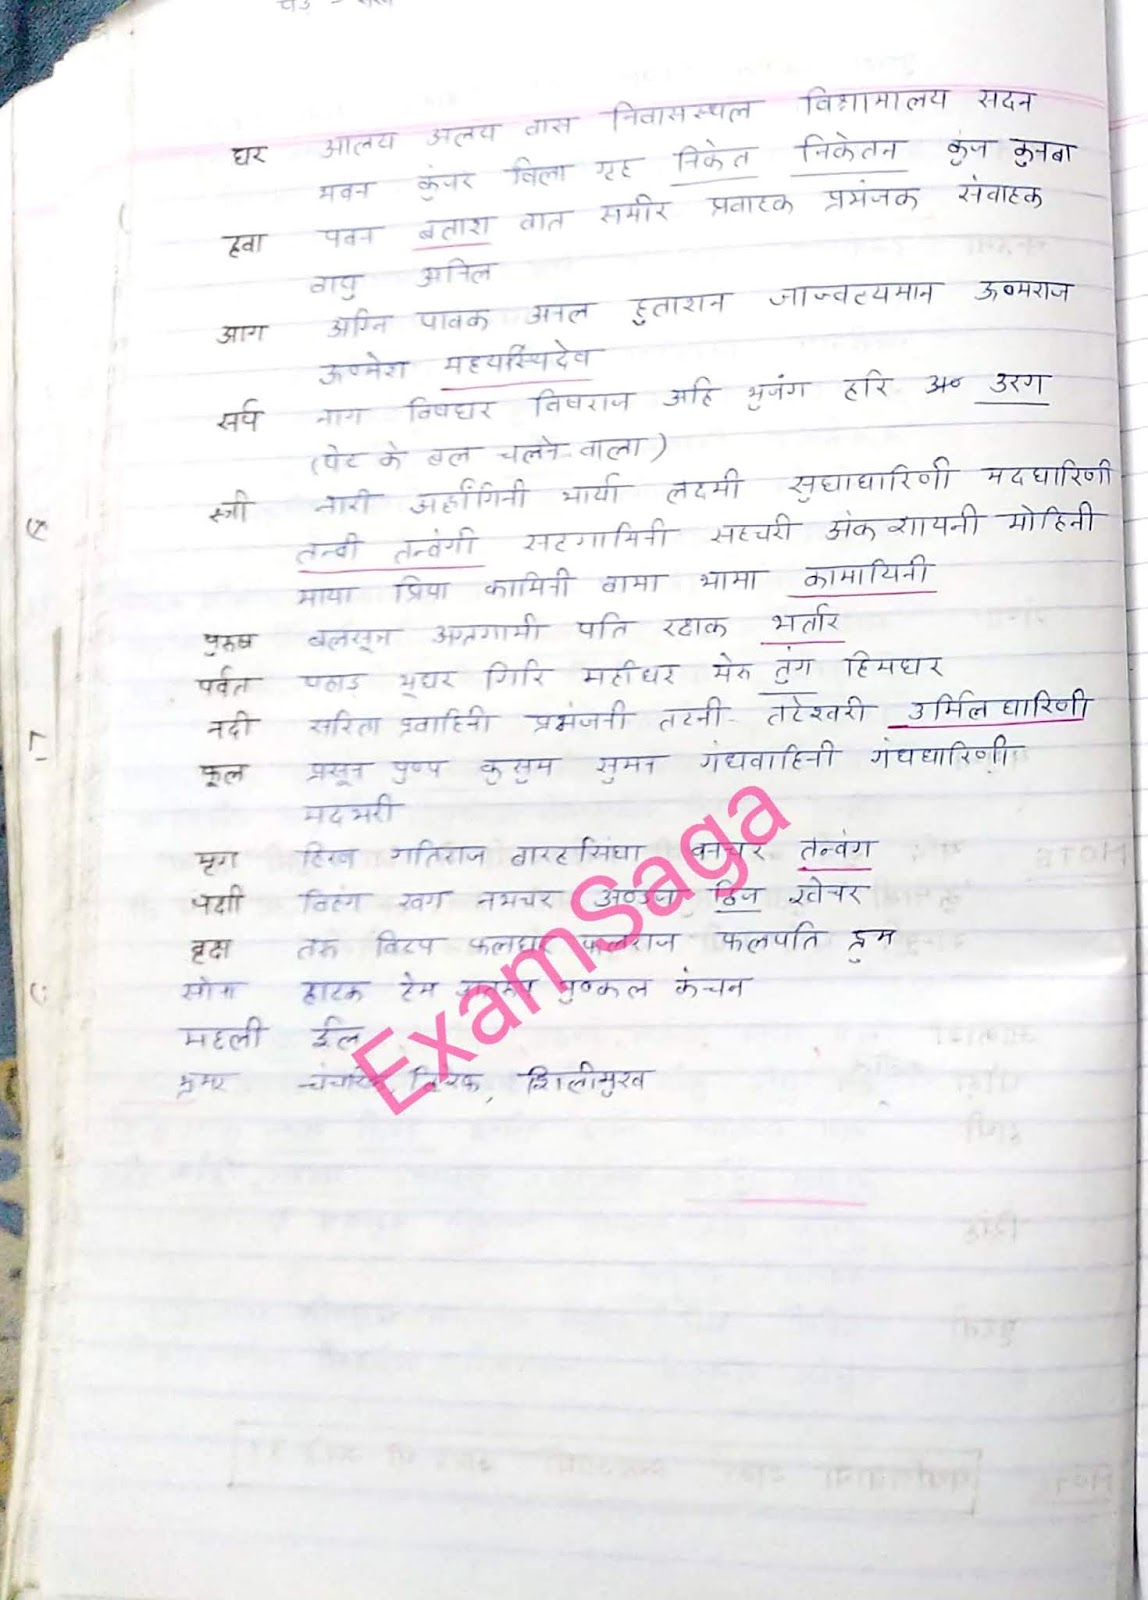 घर आलय अलय वास निवासस्थल विश्रामालय सदन
भवन कुंजर विला गृह निकेत निकेतन कुंज कुनबा
हवा पवन बतारा वात समीर प्रवाहक प्रभंजक संवाहक
वायु अनिल
आग अग्नि पावक अनल हुताशन जाज्वल्यमान ऊष्मराज
ऊष्मेश
सर्प नाग विषधर विषराज अहि भुजंग हरि उरग
(पेट के बल चलने वाला)
स्त्री नारी अर्द्धांगिनी भार्या लक्ष्मी सुधाधारिणी मदधारिणी
तन्वी तन्वंगी सहगामिनी सहचरी अंकशायनी मोहिनी
माया प्रिया कामिनी वामा भामा कामायिनी
पुरुष अग्रगामी पति रक्षक भर्तार
पर्वत पहाड़ भूधर गिरि महीधर मेरु तुंग हिमधर
नदी सरिता प्रवाहिनी प्रभंजनी तटनी तटेश्वरी उर्मिलधारिणी
फूल प्रसून पुष्प कुसुम सुमन गंधवाहिनी गंधधारिणी
मदभरी
मृग हिरन गतिराज बारहसिंघा वनचर तन्वंग
पक्षी विहग खग नभचर अण्डज द्विज खेचर
वृक्ष तरु विटप फलधर फलराज फलपति द्रुम
सोना हाटक हेम पुष्कल कंचन
मछली ईल
भ्रमर शिलीमुख
ExamSaga